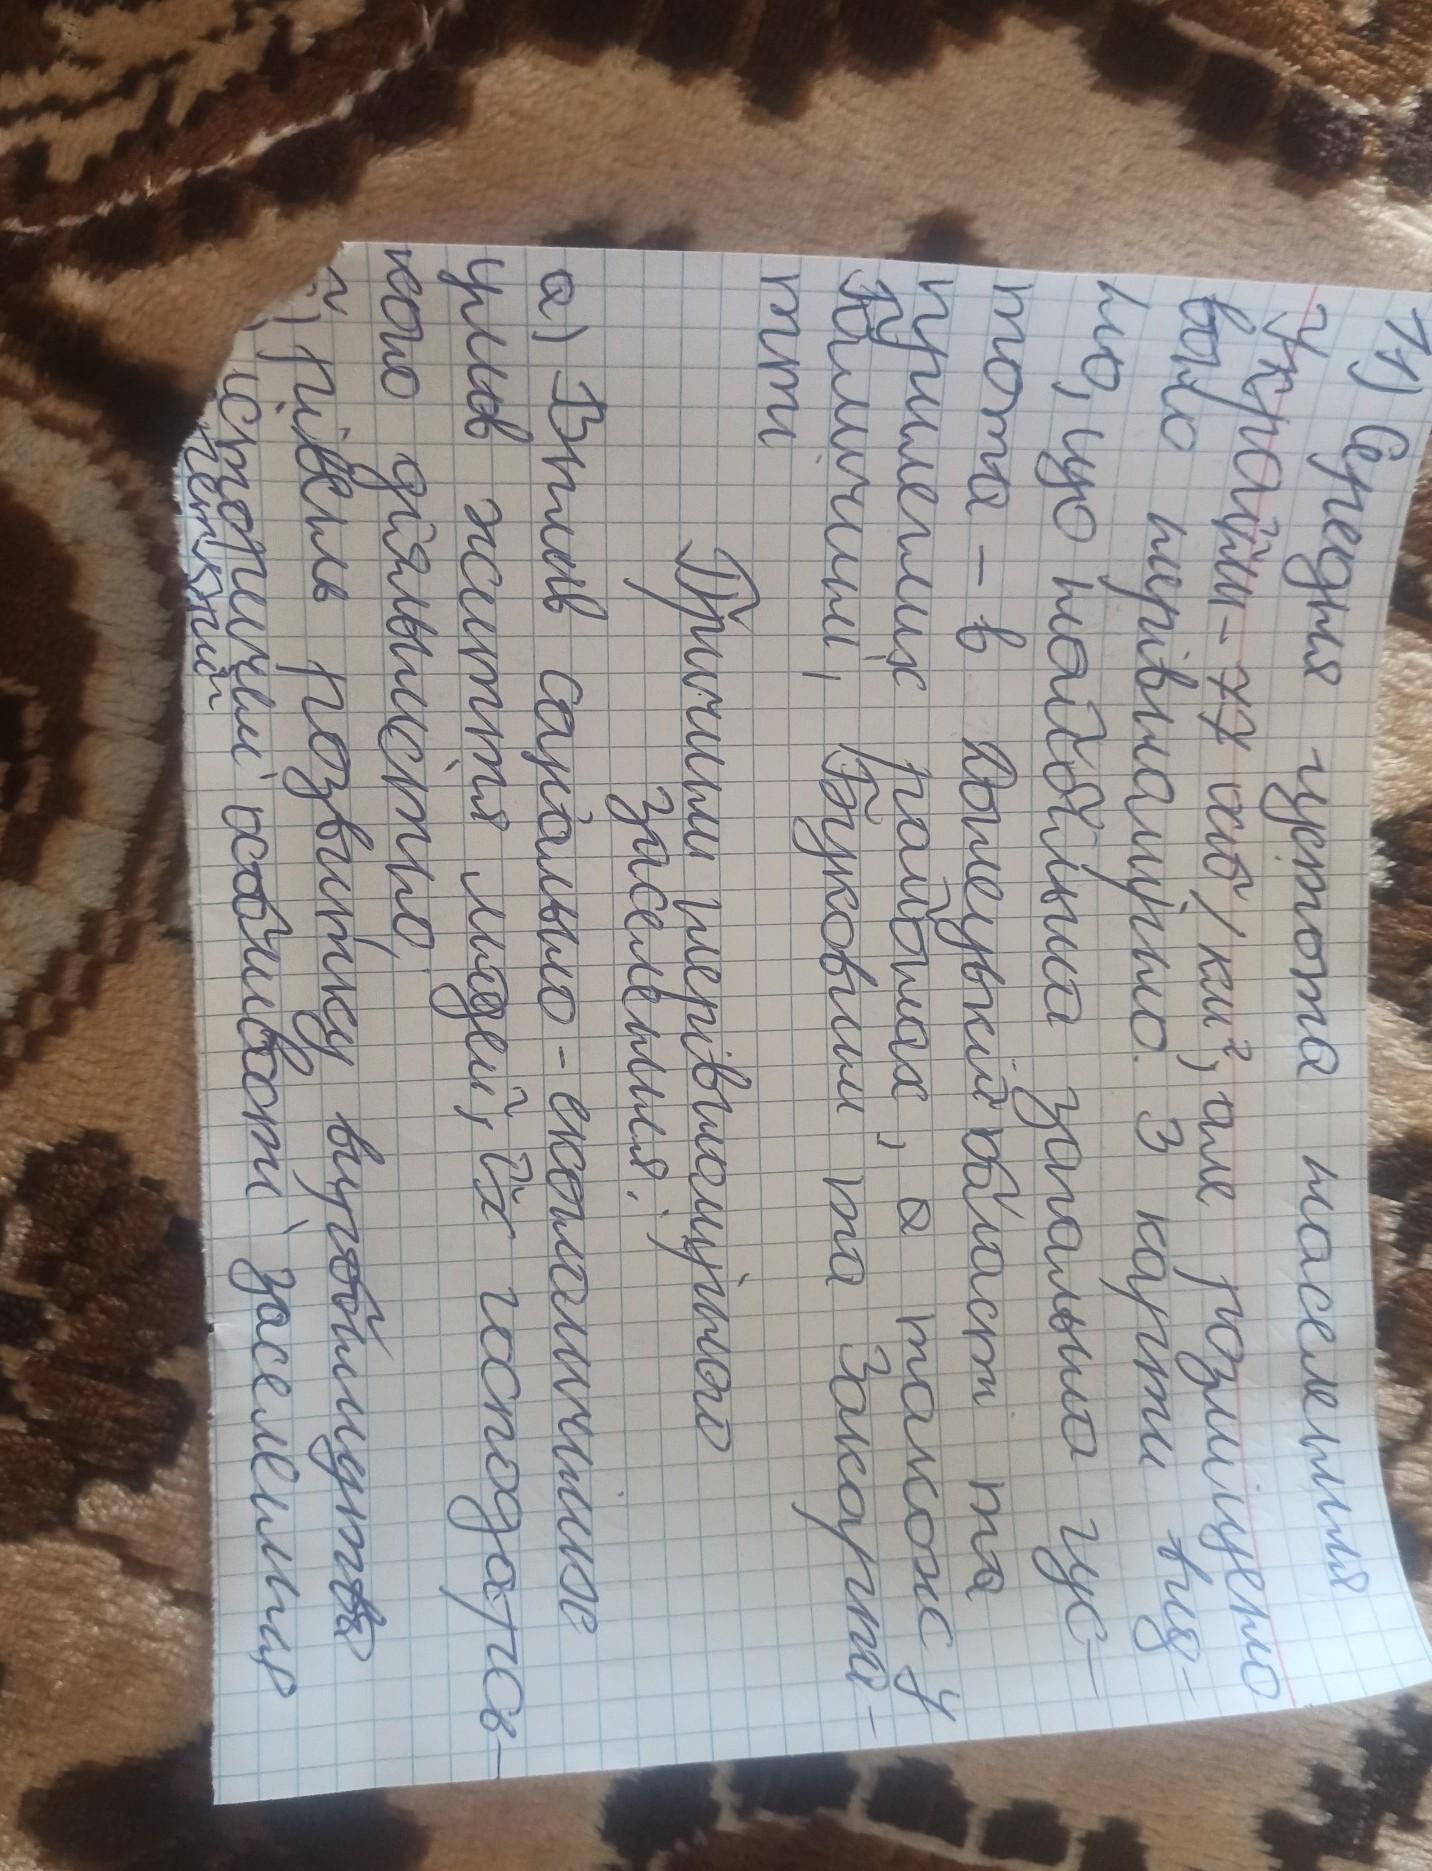 11) Середня густота населення
України - 77 осіб/км², але розміщено
воно нерівномірно. З карти вид-
но, що найбільша загальна гус-
тота - в Донецькій області та
прилеглих районах, а також у
Галичині, Буковині та Закарпа-
тті
Причини нерівномірного
заселення:
а) Вплив соціально-економічних
умов життя людей, їх господарсь-
кою діяльністю,
б) рівень розвитку виробництва
історичемі особливості заселення